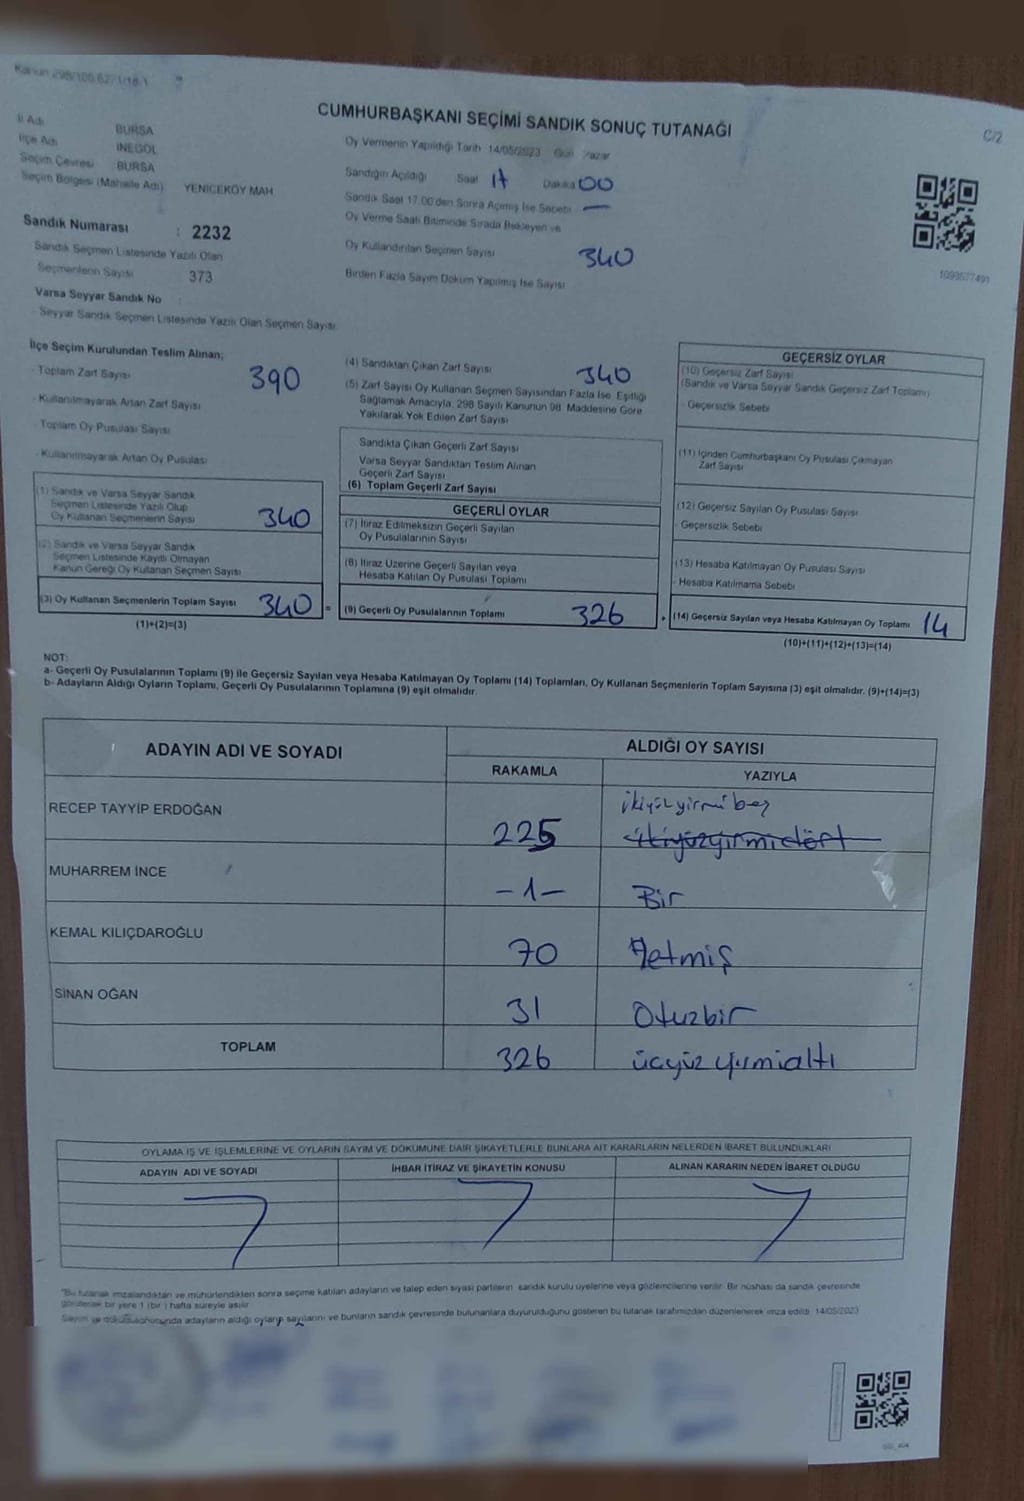 Kanun 298/105,6271/18-1
CUMHURBAŞKANI SEÇİMİ SANDIK SONUÇ TUTANAĞI
C/2
İl Adı BURSA
İlçe Adı İNEGÖL
Seçim Çevresi BURSA
Seçim Bölgesi (Mahalle Adı) YENİCEKÖY MAH
Oy Vermenin Yapıldığı Tarih 14/05/2023 Gün Pazar
Sandığın Açıldığı Saat 17 Dakika 00
Sandık Saat 17:00'den Sonra Açılmış İse Sebebi —
Oy Verme Saati Bitiminde Sırada Bekleyen ve
Oy Kullandırılan Seçmen Sayısı 340
Birden Fazla Sayım Döküm Yapılmış İse Sayısı
1093577491
Sandık Numarası : 2232
Sandık Seçmen Listesinde Yazılı Olan
Seçmenlerin Sayısı 373
Varsa Seyyar Sandık No
- Seyyar Sandık Seçmen Listesinde Yazılı Olan Seçmen Sayısı
İlçe Seçim Kurulundan Teslim Alınan;
- Toplam Zarf Sayısı 390
- Kullanılmayarak Artan Zarf Sayısı
- Toplam Oy Pusulası Sayısı
- Kullanılmayarak Artan Oy Pusulası
(1) Sandık ve Varsa Seyyar Sandık
Seçmen Listesinde Yazılı Olup
Oy Kullanan Seçmenlerin Sayısı 340
(2) Sandık ve Varsa Seyyar Sandık
Seçmen Listesinde Kayıtlı Olmayan
Kanun Gereği Oy Kullanan Seçmen Sayısı
(3) Oy Kullanan Seçmenlerin Toplam Sayısı 340 =
(1)+(2)=(3)
(4) Sandıktan Çıkan Zarf Sayısı 340
(5) Zarf Sayısı Oy Kullanan Seçmen Sayısından Fazla İse, Eşitliği
Sağlamak Amacıyla, 298 Sayılı Kanunun 98. Maddesine Göre
Yakılarak Yok Edilen Zarf Sayısı
Sandıkta Çıkan Geçerli Zarf Sayısı
Varsa Seyyar Sandıktan Teslim Alınan
Geçerli Zarf Sayısı
(6) Toplam Geçerli Zarf Sayısı
GEÇERLİ OYLAR
(7) İtiraz Edilmeksizin Geçerli Sayılan
Oy Pusulalarının Sayısı
(8) İtiraz Üzerine Geçerli Sayılan veya
Hesaba Katılan Oy Pusulası Toplamı
(9) Geçerli Oy Pusulalarının Toplamı 326 +
GEÇERSİZ OYLAR
(10) Geçersiz Zarf Sayısı
(Sandık ve Varsa Seyyar Sandık Geçersiz Zarf Toplamı)
- Geçersizlik Sebebi
(11) İçinden Cumhurbaşkanı Oy Pusulası Çıkmayan
Zarf Sayısı
(12) Geçersiz Sayılan Oy Pusulası Sayısı
- Geçersizlik Sebebi
(13) Hesaba Katılmayan Oy Pusulası Sayısı
- Hesaba Katılmama Sebebi
(14) Geçersiz Sayılan veya Hesaba Katılmayan Oy Toplamı 14
(10)+(11)+(12)+(13)=(14)
NOT:
a- Geçerli Oy Pusulalarının Toplamı (9) ile Geçersiz Sayılan veya Hesaba Katılmayan Oy Toplamı (14) Toplamları, Oy Kullanan Seçmenlerin Toplam Sayısına (3) eşit olmalıdır. (9)+(14)=(3)
b- Adayların Aldığı Oyların Toplamı, Geçerli Oy Pusulalarının Toplamına (9) eşit olmalıdır.
ADAYIN ADI VE SOYADI ALDIĞI OY SAYISI
RAKAMLA YAZIYLA
RECEP TAYYİP ERDOĞAN 225 ikiyüzyirmibeş
ikiyüzyirmidört
MUHARREM İNCE -1- Bir
KEMAL KILIÇDAROĞLU 70 Yetmiş
SİNAN OĞAN 31 Otuzbir
TOPLAM 326 üçyüz yirmialtı
OYLAMA İŞ VE İŞLEMLERİNE VE OYLARIN SAYIM VE DÖKÜMÜNE DAİR ŞİKAYETLERLE BUNLARA AİT KARARLARIN NELERDEN İBARET BULUNDUKLARI
ADAYIN ADI VE SOYADI İHBAR İTİRAZ VE ŞİKAYETİN KONUSU ALINAN KARARIN NEDEN İBARET OLDUĞU
"Bu tutanak imzalandıktan ve mühürlendikten sonra seçime katılan adayların ve talep eden siyasi partilerin sandık kurulu üyelerine veya gözlemcilerine verilir. Bir nüshası da sandık çevresinde
görülecek bir yere 1 (bir) hafta süreyle asılır.
Sayım ve dökümün sonunda adayların aldığı oyların sayılarını ve bunların sandık çevresinde bulunanlara duyurulduğunu gösteren bu tutanak tarafımızdan düzenlenerek imza edildi. 14/05/2023